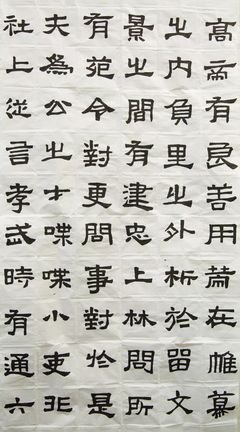 高帝有良善用在帷幕
之内負里之外析於留文
景之間有建忠上林問所
有苑令對更問事對於是
夫為公之才喋喋小吏非
社上從言孝武時有通六